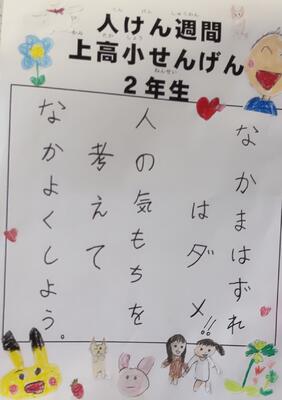 人けん週間
上高小せんげん
2年生
なかまはずれ
はダメ!!
人の気もちを
考えて
なかよくしよう。